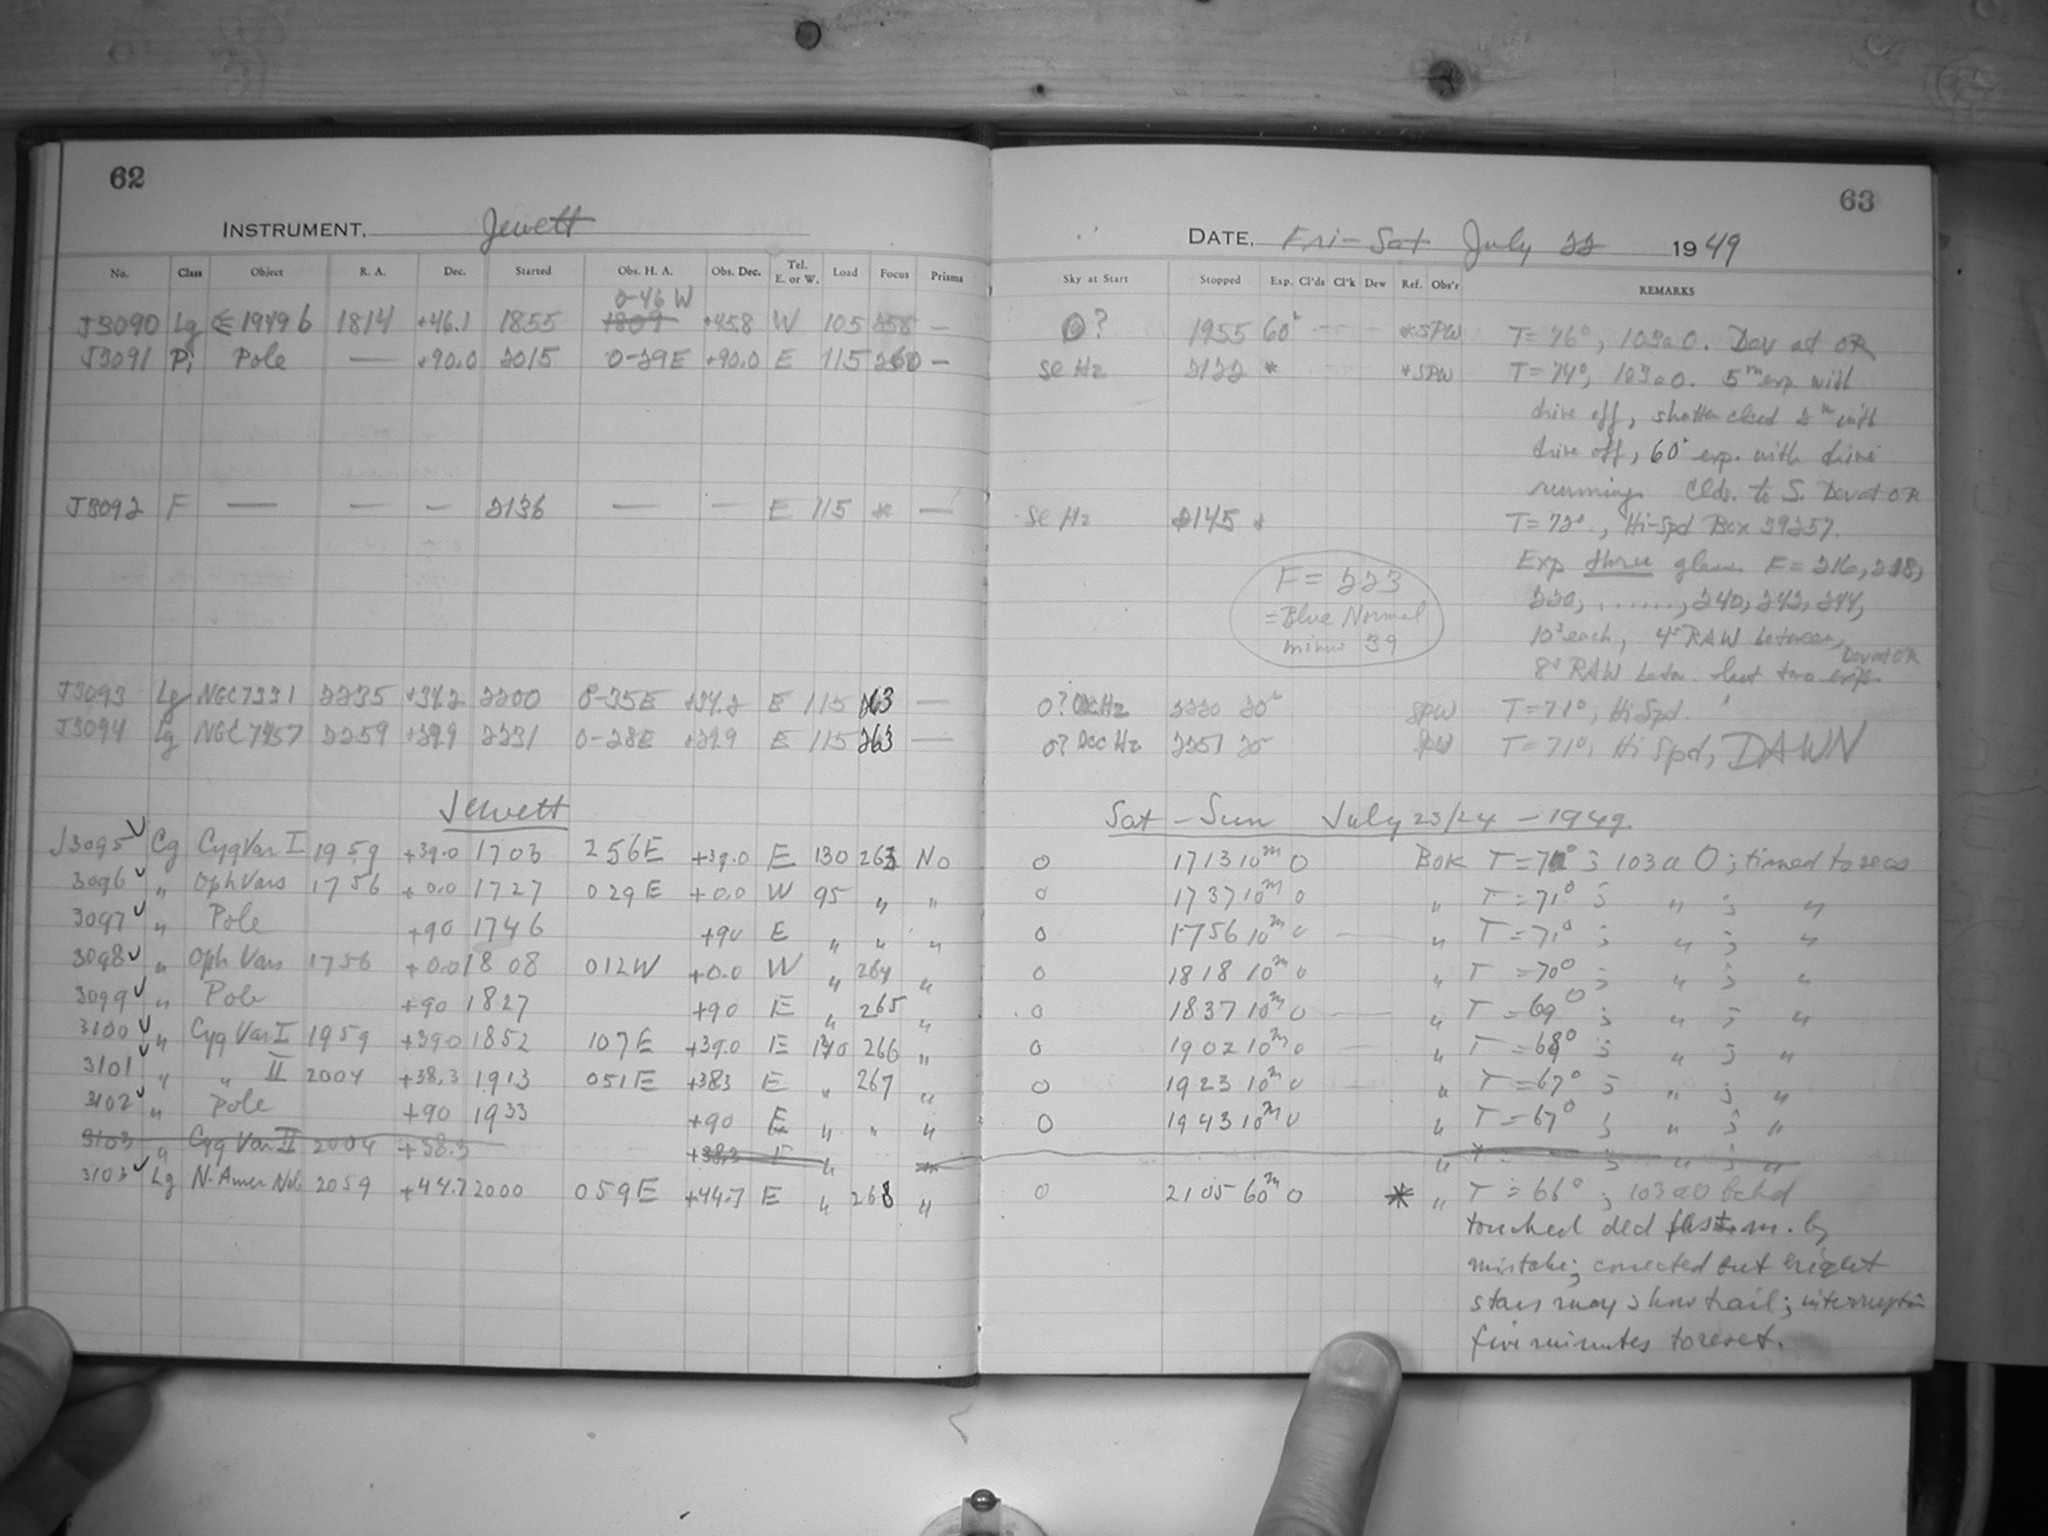 62
INSTRUMENT, Jewett
No. Class Object R. A. Dec. Started Obs. H. A. Obs. Dec. Tel. E. or W. Load Focus Prisms
0-46 W
J3090 Lg 1949 b 1814 +46.1 1855 1809 +45.8 W 105 258 —
J3091 Pi Pole — +90.0 2015 0-29E +90.0 E 115 260 —
J3092 F — — — 2136 — — E 115 * —
J3093 Lg NGC7331 2235 +34.2 2200 0-35E +34.2 E 115 263 —
J3094 Lg NGC7457 2259 +29.9 2231 0-28E +29.9 E 115 263 —
Jewett
J3095 Cg CygVar I 1959 +39.0 1703 256E +39.0 E 130 263 No
3096 " Oph Vars 1756 +0.0 1727 029E +0.0 W 95 " "
3097 " Pole +90 1746 +90 E " " "
3098 " Oph Vars 1756 +0.0 1808 012W +0.0 W " 264 "
3099 " Pole +90 1827 +90 E " 265 "
3100 " Cyg Var I 1959 +39.0 1852 107E +39.0 E 130 266 "
3101 " " II 2004 +38.3 1913 051E +38.3 E " 267 "
3102 " Pole +90 1933 +90 E " " "
3103 " Cyg Var II 2004 +38.3 +38.3 E "
3103 Lg N. Amer Neb 2059 +44.7 2000 059E +44.7 E " 268 "
63
DATE, Fri-Sat July 22 1949
Sky at Start Stopped Exp. Cl'ds Cl'k Dew Ref. Obs'r REMARKS
0? 1955 60 * SPW T=76°, 103a O. Dev at OR
Se Hz 2122 * * SPW T=74°, 103a O. 5m exp. with
drive off, shutter closed 2m with
drive off, 60 exp. with drive
running. Clds. to S. Dev at OR
Se Hz 2145 * T=72°, Hi-Spd Box 39257.
Exp three glass F=216, 218,
220, ......, 240, 242, 244,
10s each, 4s RAW between,
8s RAW betw. last two exp. Dev at OR
F = 223
= Blue Normal
minus 39
0? Hz 2220 20 SPW T=71°, Hi Spd.
0? Hz 2251 20 SPW T=71°, Hi Spd, DAWN
Sat - Sun July 23/24 - 1949.
0 1713 10m 0 Bok T=71° ; 103 a O ; timed to secs
0 1737 10m 0 " T=71° ; " ; "
0 1756 10m 0 — " T=71° ; " ; "
0 1818 10m 0 " T=70° ; " ; "
0 1837 10m 0 — " T=69° ; " ; "
0 1902 10m 0 — " T=68° ; " ; "
0 1923 10m 0 — " T=67° ; " ; "
0 1943 10m 0 " T=67° ; " ; "
" * ; " ; "
0 2105 60m 0 * " T=66° ; 103 a O bckd
touched decl by
mistake; corrected but bright
stars may show trail; interruption
five minutes to reset.